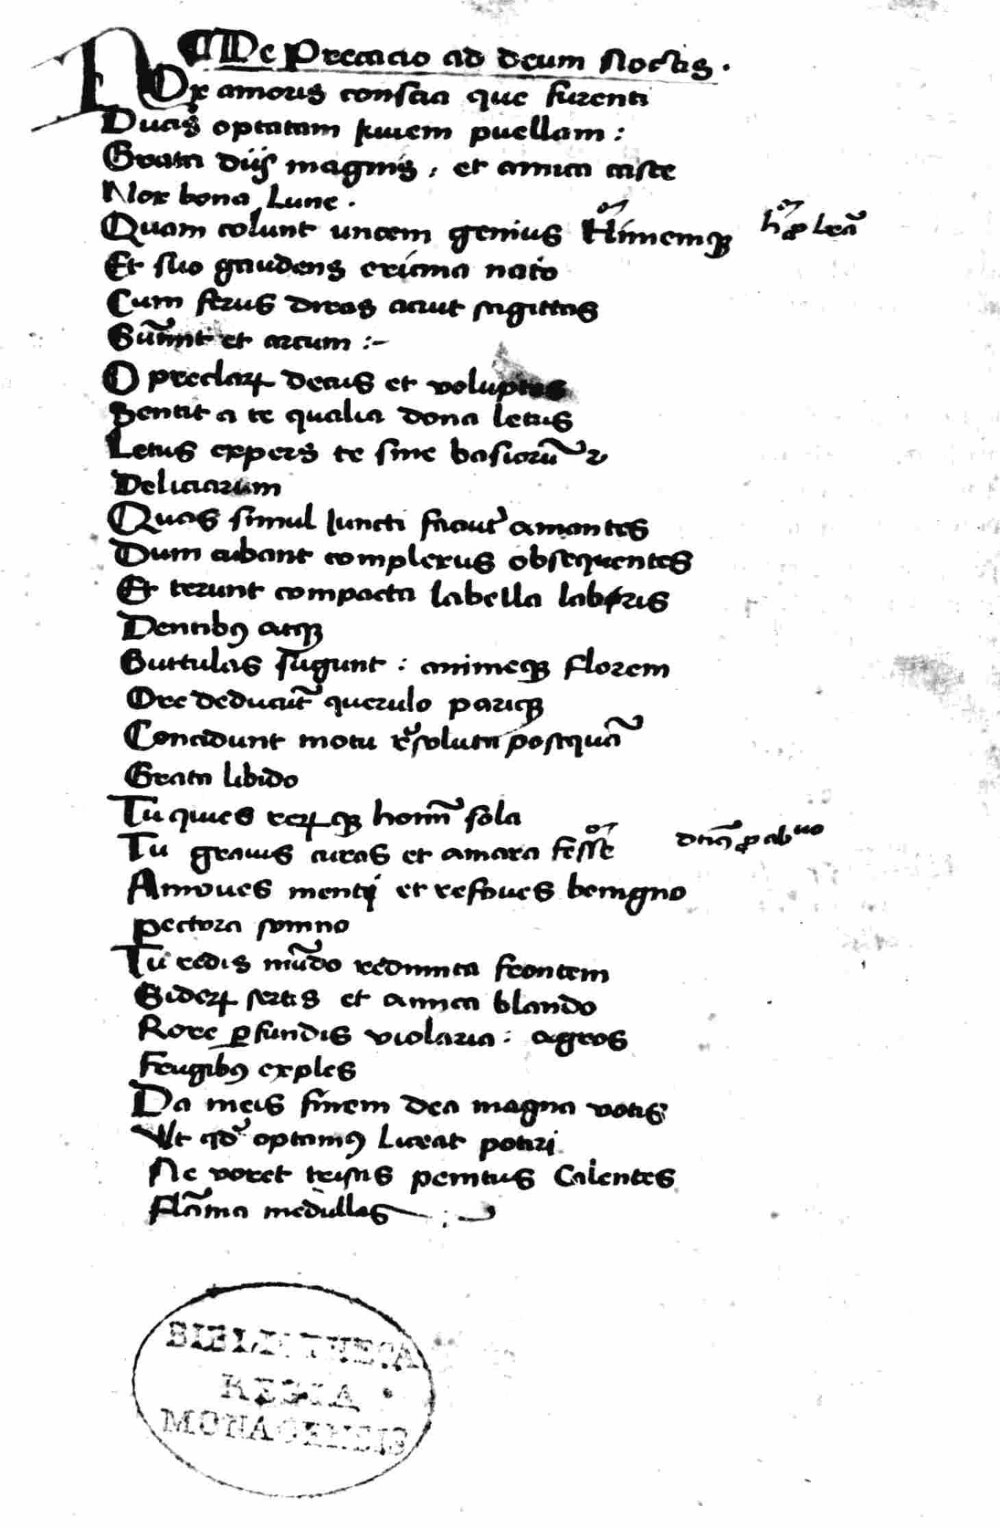 De Precacio ad deum Noctis.
Nox amoris conscia que furenti
Ducis optatam iuuem puellam:
Grata diis magnis, et amica caste
Nox bona Lune.
Quam colunt uncem genius Himemqȝ hʳ p̱ lrã
Et suo gaudens ericina nato
Cum ferus diras acuit sagittas
Sumit et arcum :-
O preclarꝝ decus et voluptas
Sentit a te qualia dona letus
Letus expers te sine basiorũ ꝛ
Deliciarum
Quas simul Juncti faciũt amantes
Dum cubant complexus obsequentes
Et terunt compacta labella labris
Dentibꝫ atqȝ
Guttulas sugunt : animeqȝ florem
Ore deducũt querulo pariqȝ
Concidunt motu resoluta postquã
Grata libido
Tu quies rerꝝqȝ hominũ sola
Tu grauis curas et amara fesse
Amoues menti et refoues benigno
pectora somno
Tu redis mũdo redimita frontem
Siderꝝ sertis et amica blando
Rore ꝑfundis violaria : agros
Frugibꝫ exples
Da meis finem dea magna votis
Ut qd optamꝰ liceat potiri
Ne voret tristis penitus Calentes
Flãma medullas
BIBLIOTHECA
REGIA
MONACENSIS